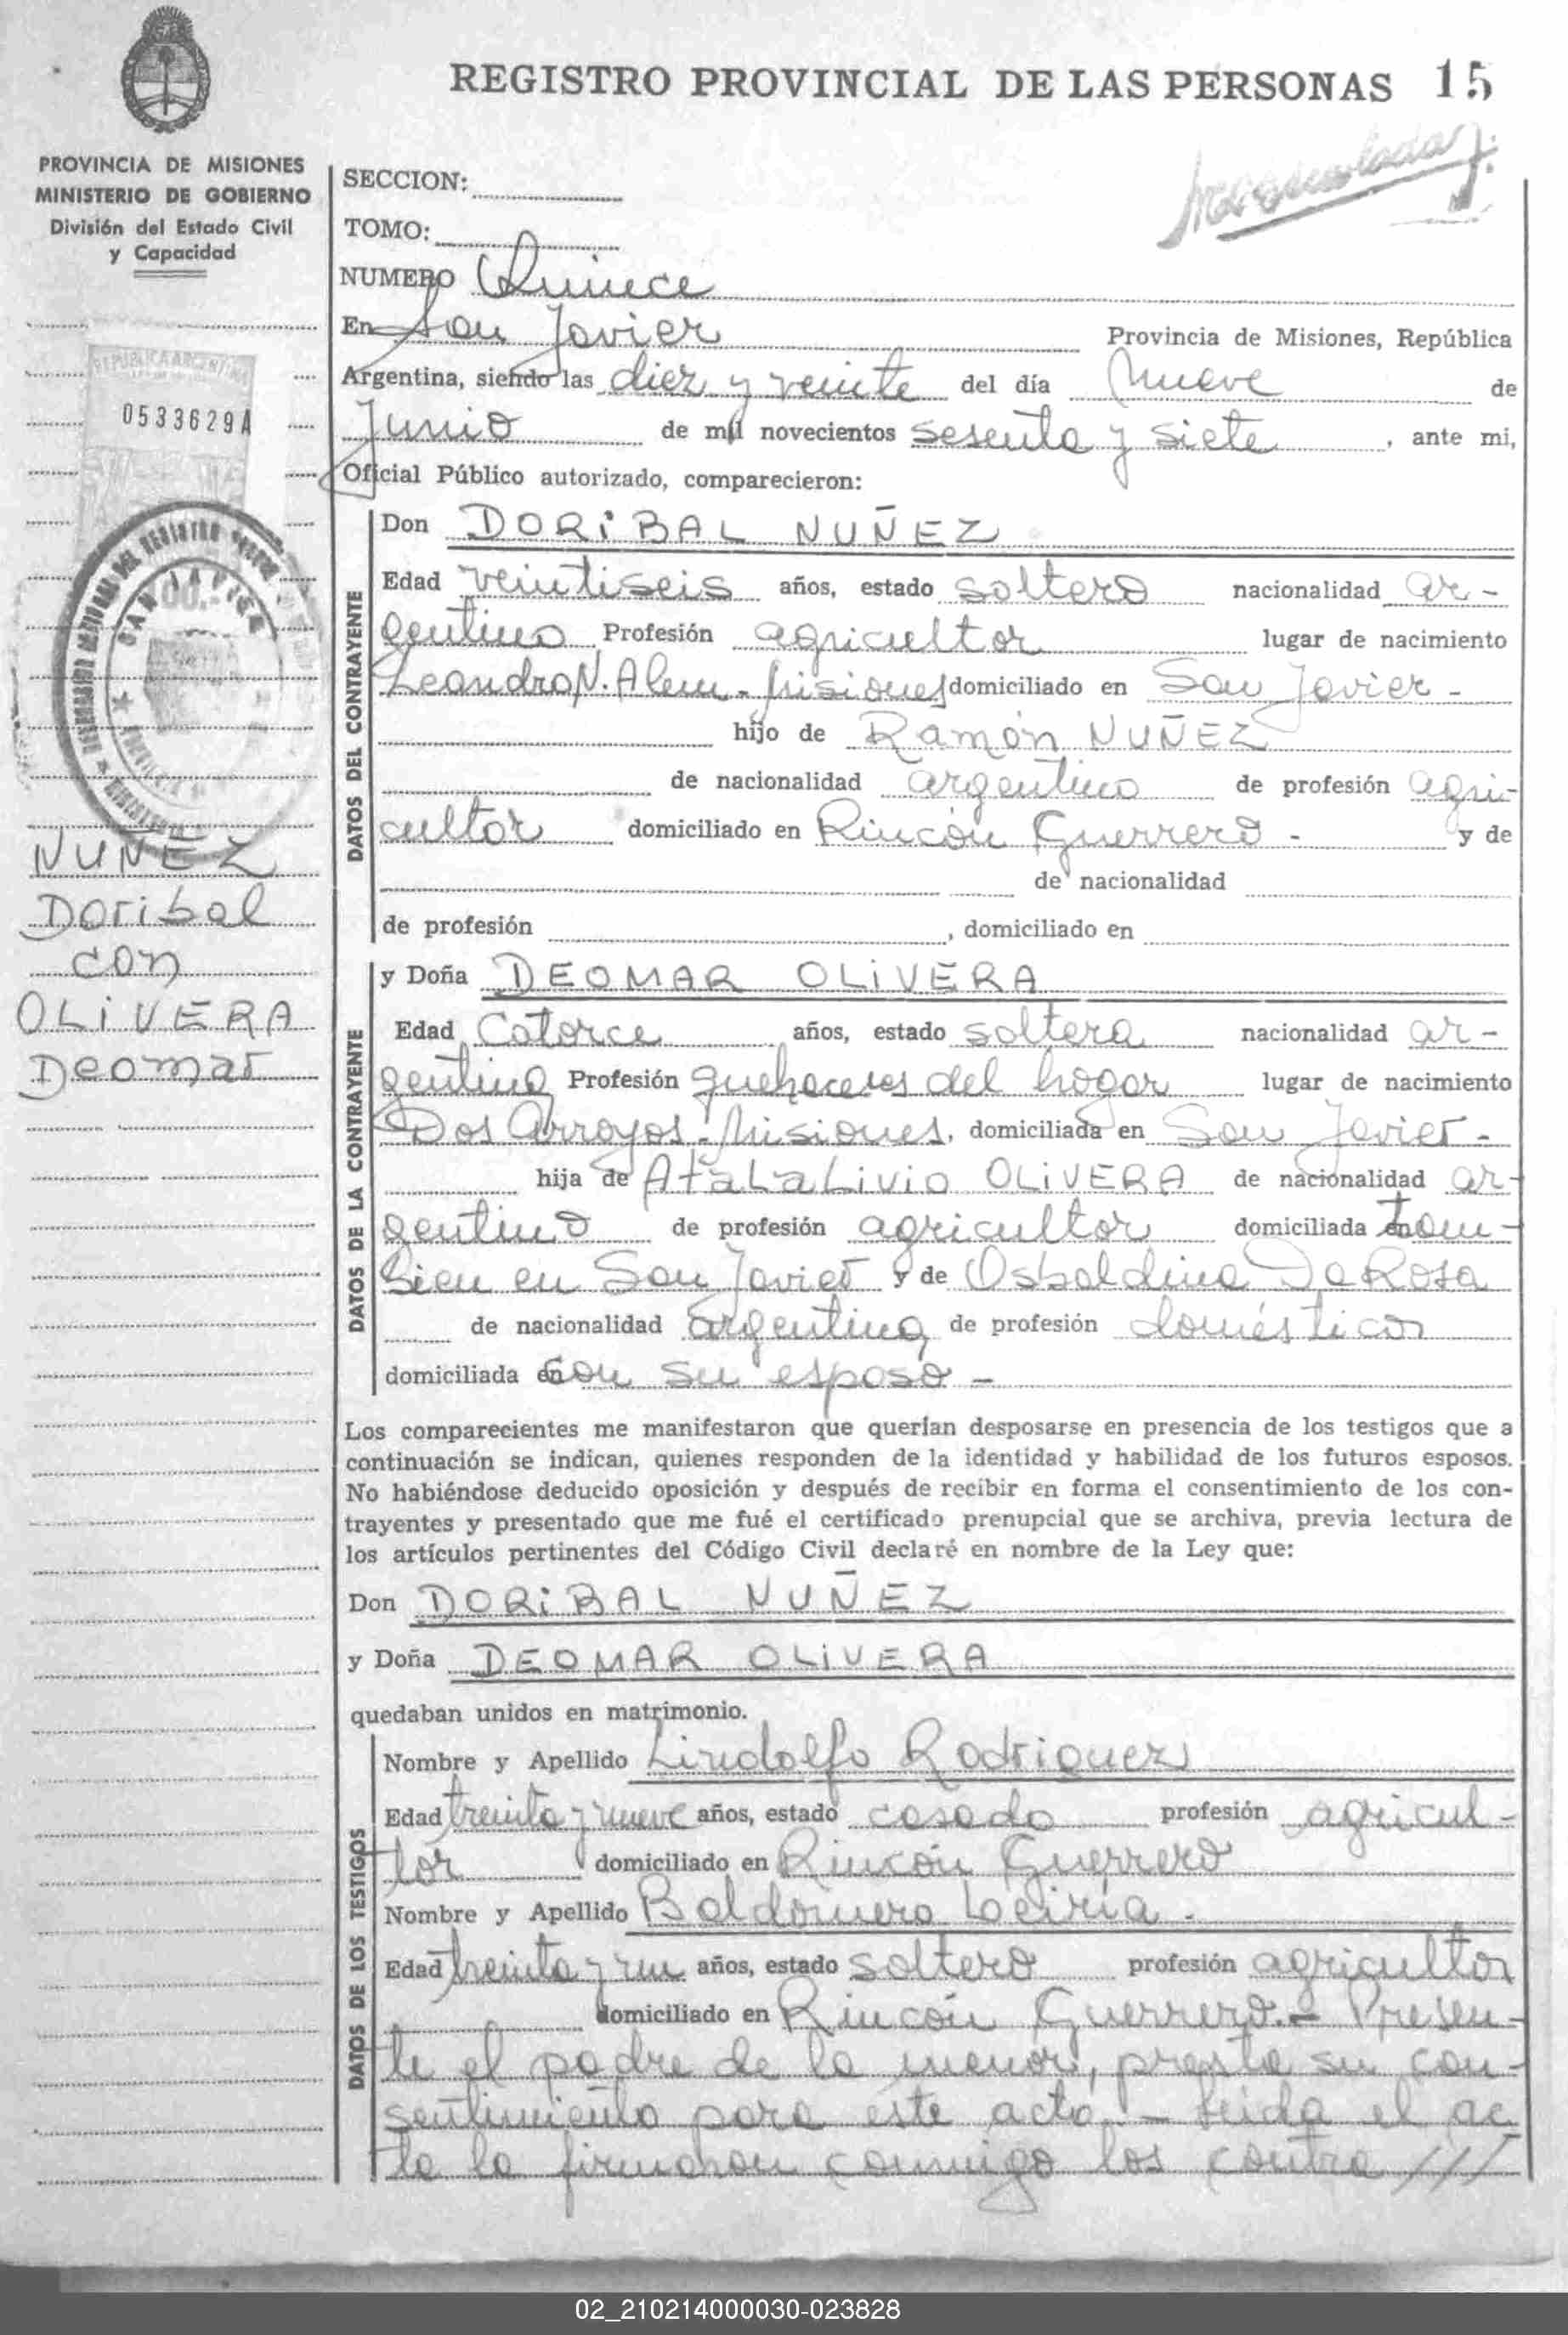 REGISTRO PROVINCIAL DE LAS PERSONAS 15
PROVINCIA DE MISIONES
MINISTERIO DE GOBIERNO
División del Estado Civil
y Capacidad
SECCION:
TOMO:
NUMERO Quince
En San Javier Provincia de Misiones, República
Argentina, siendo las diez y veinte del día nueve de
Junio de mil novecientos sesenta y siete, ante mi,
Oficial Público autorizado, comparecieron:
REPUBLICA ARGENTINA
0533629A
SAN JAVIER
NUÑEZ
Doribal
con
OLIVERA
Deomar
DATOS DEL CONTRAYENTE
Don DORIBAL NUÑEZ
Edad veintiseis años, estado soltero nacionalidad ar-
gentino Profesión agricultor lugar de nacimiento
Leandro N. Alem - Misiones domiciliado en San Javier -
hijo de Ramón NUÑEZ
de nacionalidad argentino de profesión agri-
cultor domiciliado en Rincón Guerrero - y de
de nacionalidad
de profesión , domiciliado en
DATOS DE LA CONTRAYENTE
y Doña DEOMAR OLIVERA
Edad Catorce años, estado soltera nacionalidad ar-
gentina Profesión quehaceres del hogar lugar de nacimiento
Dos Arroyos - Misiones, domiciliada en San Javier -
hija de Atalalivio OLIVERA de nacionalidad ar-
gentino de profesión agricultor domiciliada en tam-
bien en San Javier y de Osbaldina Da Rosa
de nacionalidad argentina de profesión domésticos
domiciliada en con su esposo -
Los comparecientes me manifestaron que querían desposarse en presencia de los testigos que a
continuación se indican, quienes responden de la identidad y habilidad de los futuros esposos.
No habiéndose deducido oposición y después de recibir en forma el consentimiento de los con-
trayentes y presentado que me fué el certificado prenupcial que se archiva, previa lectura de
los artículos pertinentes del Código Civil declaré en nombre de la Ley que:
Don DORIBAL NUÑEZ
y Doña DEOMAR OLIVERA
quedaban unidos en matrimonio.
DATOS DE LOS TESTIGOS
Nombre y Apellido Lindolfo Rodriguez
Edad treinta y nueve años, estado casado profesión agricul-
tor domiciliado en Rincón Guerrero
Nombre y Apellido Baldomero
Edad treinta y un años, estado soltero profesión agricultor
domiciliado en Rincón Guerrero.- Presen-
te el padre de la menor, presta su con-
sentimiento para este acto.- Leida el ac
ta la firmaron conmigo los contra///
02_210214000030-023828